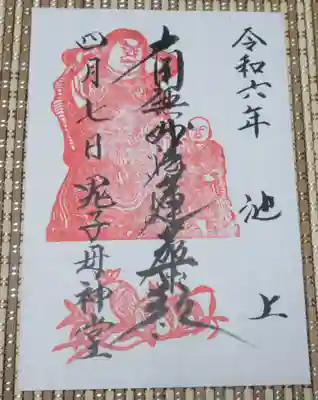 令和六年 池上
南無妙法蓮華経
四月七日 鬼子母神堂